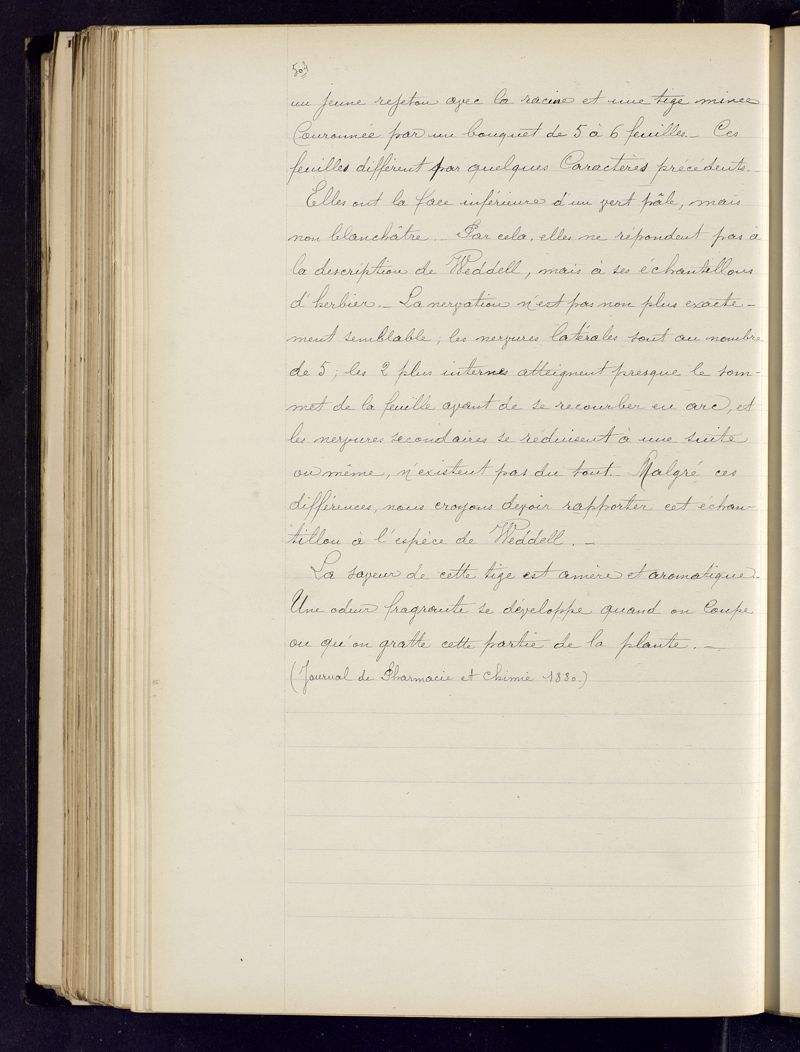 504
un jeune rejeton avec la racine et une tige mince
Couronnée par un bouquet de 5 à 6 feuilles. – Ces
feuilles diffèrent par quelques Caractères précédents. –
Elles ont la face inférieure d'un vert pâle, mais
non blanchâtre. – Par cela, elles ne répondent pas à
la description de Weddell, mais à ses échantillons
d'herbier. – La nervation n'est pas non plus exacte-
ment semblable; les nervures latérales sont au nombre
de 5; les 2 plus internes atteignent presque le som-
met de la feuille avant de se recourber en arc, et
les nervures secondaires se réduisent à une suite
ou même, n'existent pas du tout. Malgré ces
différences, nous croyons devoir rapporter cet échan-
tillon à l'espèce de Weddell. –
La saveur de cette tige est amère et aromatique.
Une odeur fragrante se développe quand on Coupe
ou qu'on gratte cette partie de la plante. –
(Journal de Pharmacie et Chimie 1880.)